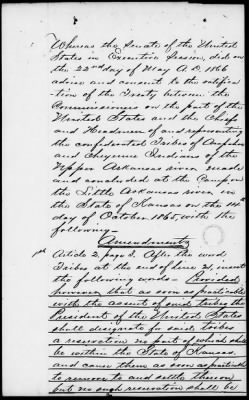 Whereas the Senate of the United
States in Executive Session, did on
the 22nd day of May A.D. 1866
advise and consent to the ratifica-
-tion of the Treaty between the
Commissioners on the part of the
United States and the Chiefs
and Headmen of and representing
the confederated tribes of Arapahoe
and Cheyenne Indians of the
Upper Arkansas river made
and concluded at the Camp on
the Little Arkansas river in
the State of Kansas on the 14th
day of October 1865, with the
following—
Amendments
1st Article 2, page 3. After the word
tribes at the end of line 21, insert
the following words: Provided
however that as soon as practicable
with the assent of said tribes the
President of the United States
shall designate for said tribes
a reservation no part of which shall
be within the State of Kansas,
and cause them as soon as practicable
to remove to and settle thereon,
but no such reservation shall be